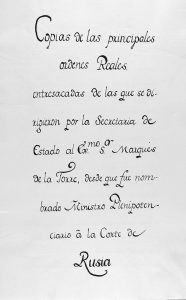 Copias de las principales
ordenes Reales,
entresacadas de las que se di-
rigieron por la Secretaria de
Estado al Exmo. Sr. Marques
de la Torre, desde que fue nom-
brado Ministro Plenipoten-
ciario à la Corte de
Rusia